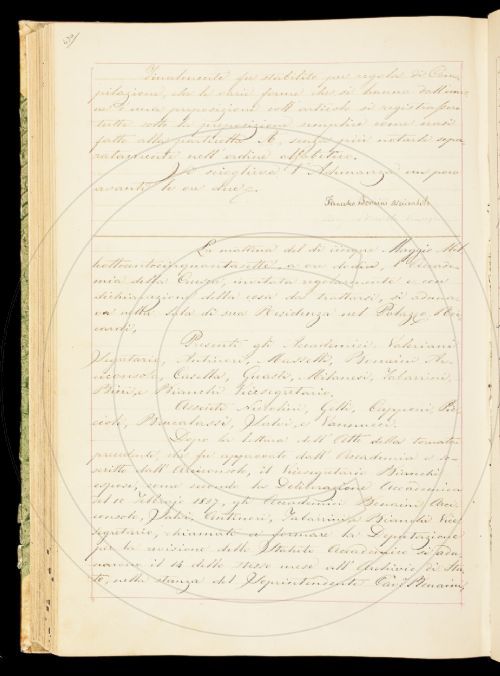 Finalmente fu stabilito per regola di Com-
pilazione, che le varie forme che si hanno dall'unio-
ne d'una preposizione coll'articolo si registrassero
tutte sotto la preposizione semplice come erasi
fatto alla particella A, senza più notarle sepa-
ratamente nell'ordine alfabetico.
Si scioglieva l'Adunanza un poco
avanti le ore due.
Francesco Bonaini
La mattina del dì cinque Maggio Mil
leottocentocinquantasette, a ore dodici, l'Accade-
mia della Crusca, invitata regolarmente e con
dichiarazione della cosa da trattarsi, si aduna-
va nella sala di sua Residenza nel Palazzo Ric-
cardi,
Presenti gli Accademici Valeriani
Segretario, Antinori, Masselli, Bonaini Ar-
ciconsolo, Casella, Guasti, Milanesi, Tabarrini,
Bini, e Bianchi Vicesegretario,
Assenti Niccolini, Gelli, Capponi, Puc-
cioli, Brucalassi, Salvi, e Vannucci.
Dopo la lettura dell'Atto della tornata
precedente, che fu approvato dall'Accademia e so-
scritto dall'Arciconsolo, il Vicesegretario Bianchi
espose, come secondo la Deliberazione Accademica
del 10 Febbrajo 1857, gli Accademici Bonaini Arci-
consolo, Salvi, Antinori, Tabarrini e Bianchi Vice
segretario, chiamati a formare la Deputazione
per la revisione dello Statuto Accademico si adu-
narono il 14 dello stesso mese all'Archivio di Sta-
to, nella stanza del Soprintendente Cav. Bonaini,